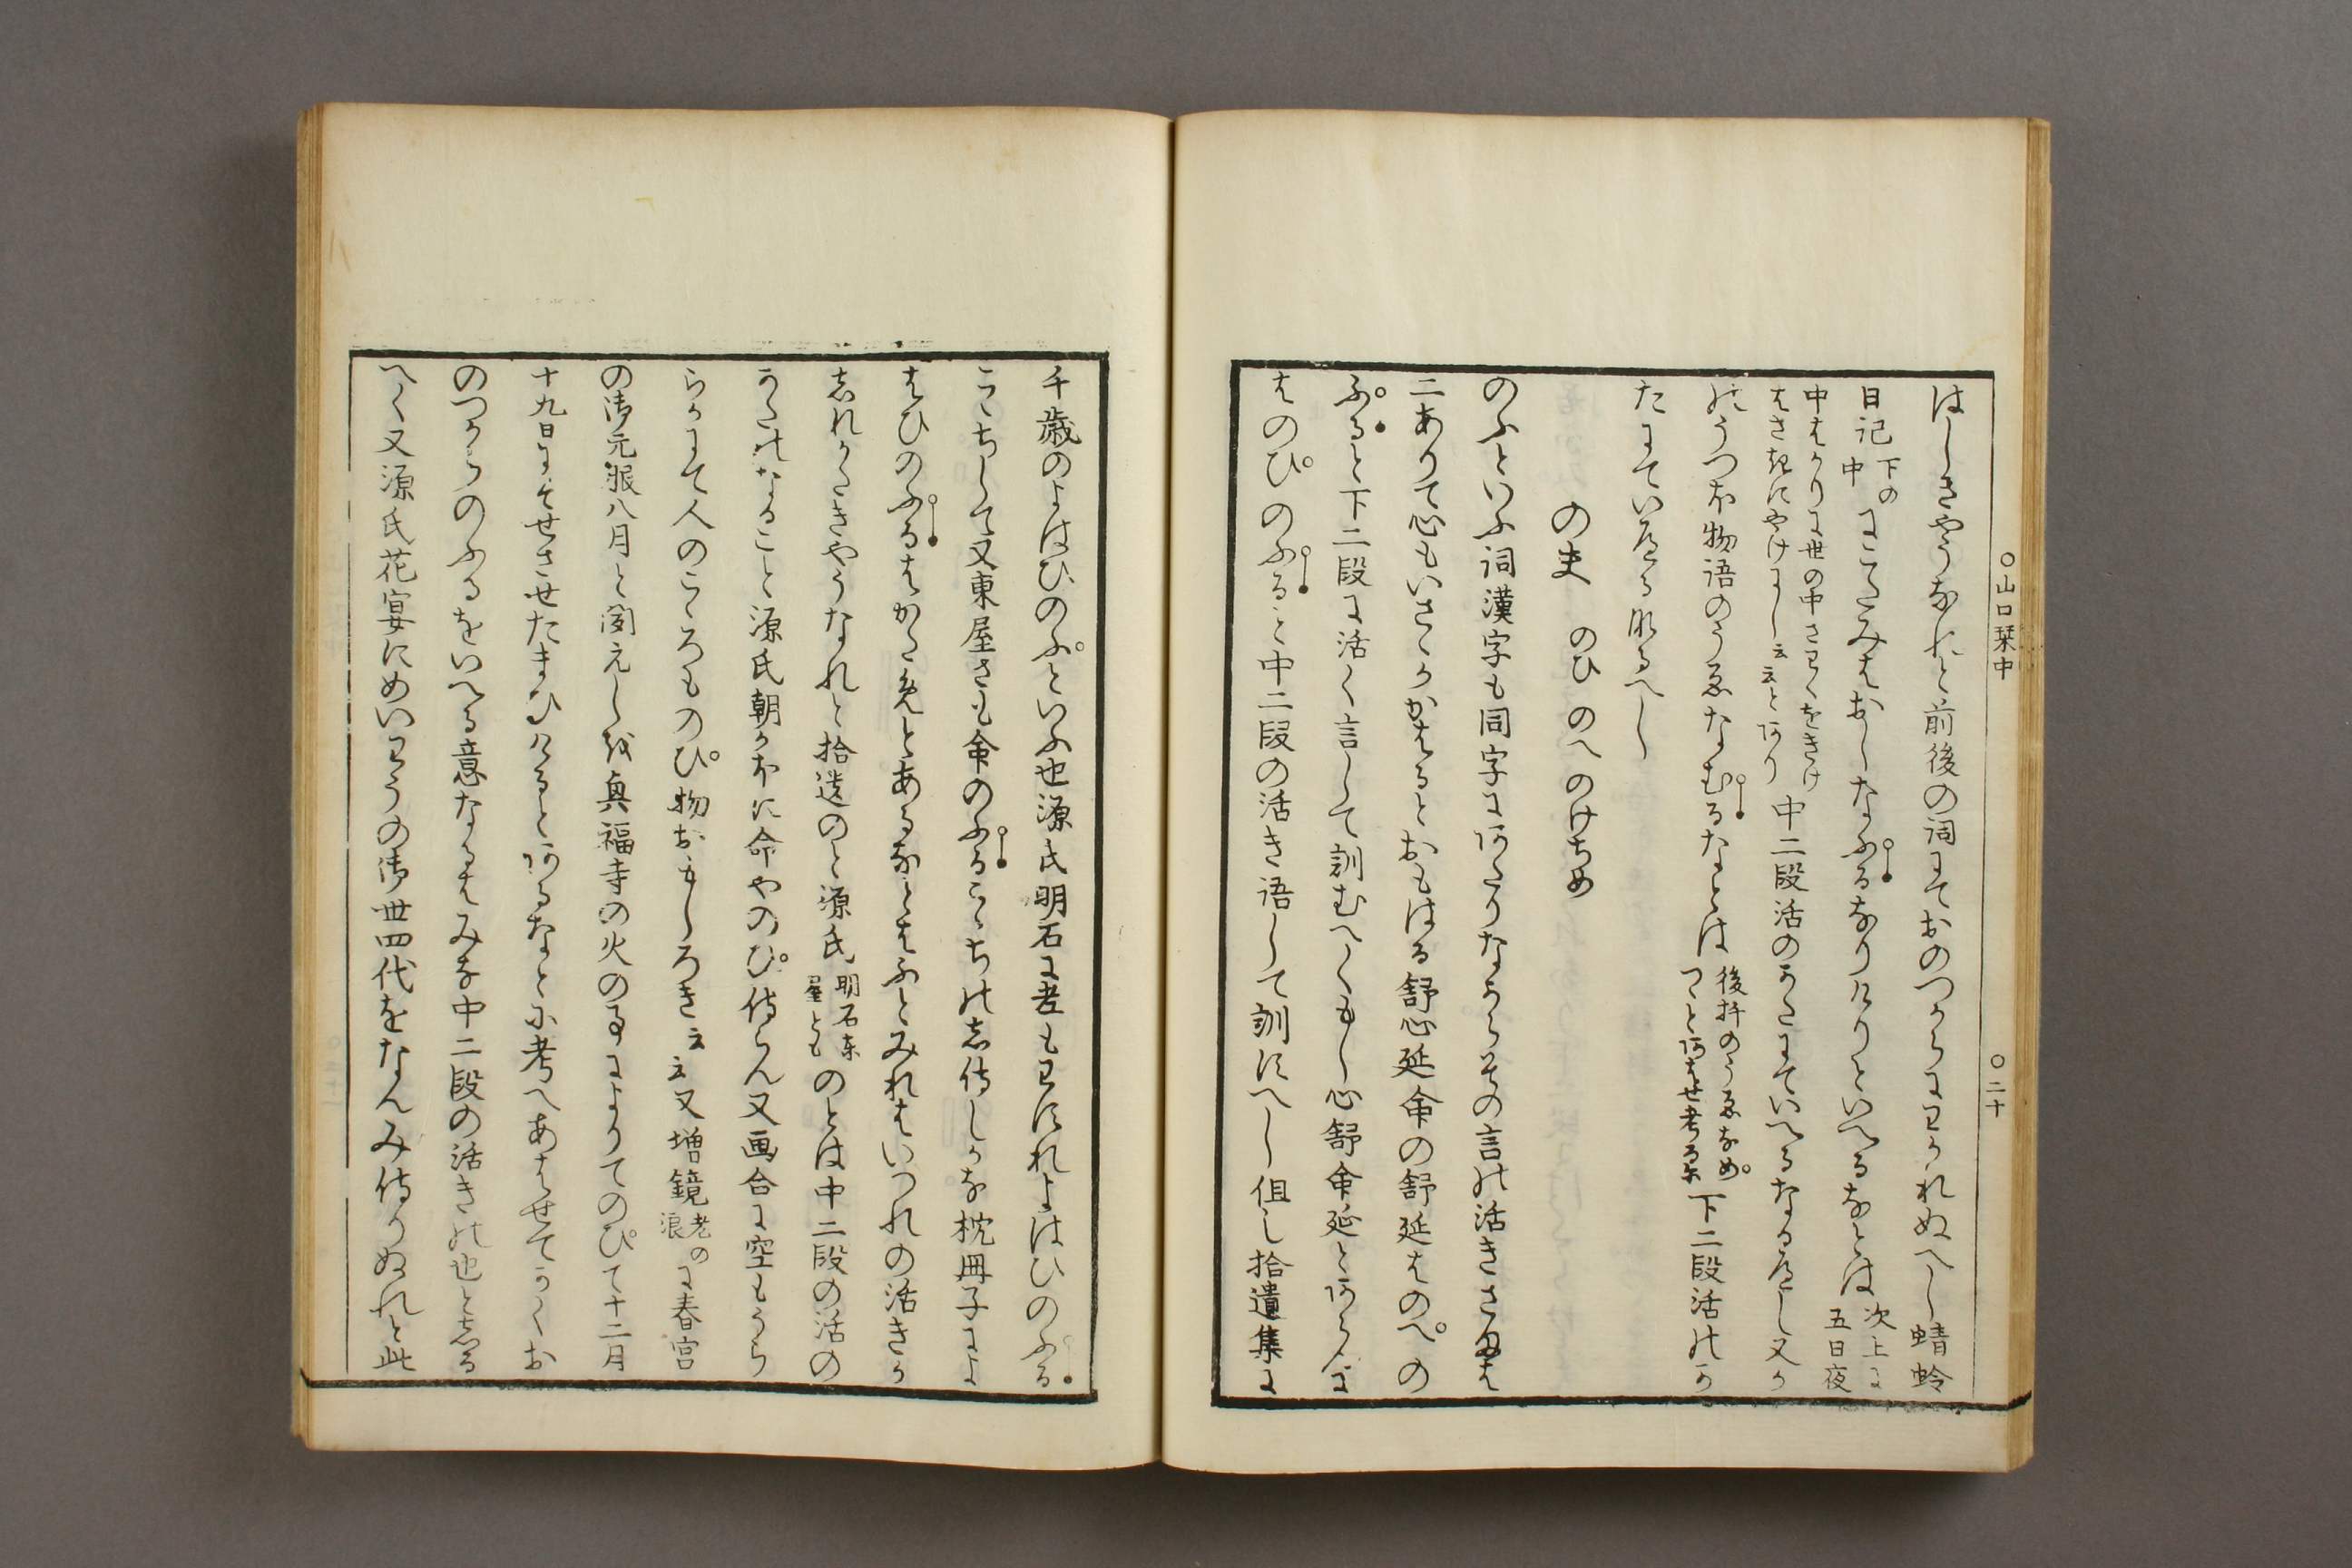 ○山口栞中
○二十
はしさやうなれと前後の詞にておのつからにわかれぬへし蜻蛉
日記
下の
中
にこゝみはおしなふるなりけりといへるなとは
次上に
五日夜
中はかりに世の中さわくをきけ
はさきにやけにし云云とあり
中二段活のかたにていへるなるへし又か
のうつほ物語のうゑなむるなとは
後拾のうゑなめ
つゝとあはせ考る
下二段活のか
たにていへる也るへし
のふ のひ のへのけちめ
のふといふ詞漢字も同字にあたりなからその言の活きさまは
二ありて心もいさゝかかはると
おもはる舒心延命の舒延はのへの
ふると下二段に活く言して訓むへくもし心舒命延とあらんに
はのひのふると中二段の活き語して訓にへし但し拾遺集に
千歳のよはひのふといふ也源氏明石に老もわすれよはひのふる
こゝちして又東屋さも命のふるこゝちのし侍しかな枕冊子によ
はひのふるはかた見とあるなとはふとみれはいつれの活きか
しれかたきやうなれと拾遺のと源氏
明石東
屋とも
のとは中二段の活の
かたのなること源氏朝かほに命やのひ侍らん又画合に空もうら
らかにて人のこゝろものひ物おもしろき云云又増鏡
老の
浪
に春宮
の御元服八月と聞えしを奥福寺の火の事によりてのひて十二月
十九日にそせさせたまひけるとあるなとに考へあはせてかくお
のつからのふるをいへる意なるはみな中二段の活きの也としる
へく又源氏花宴にめいわうの御世四代をなんみ侍りぬれと此